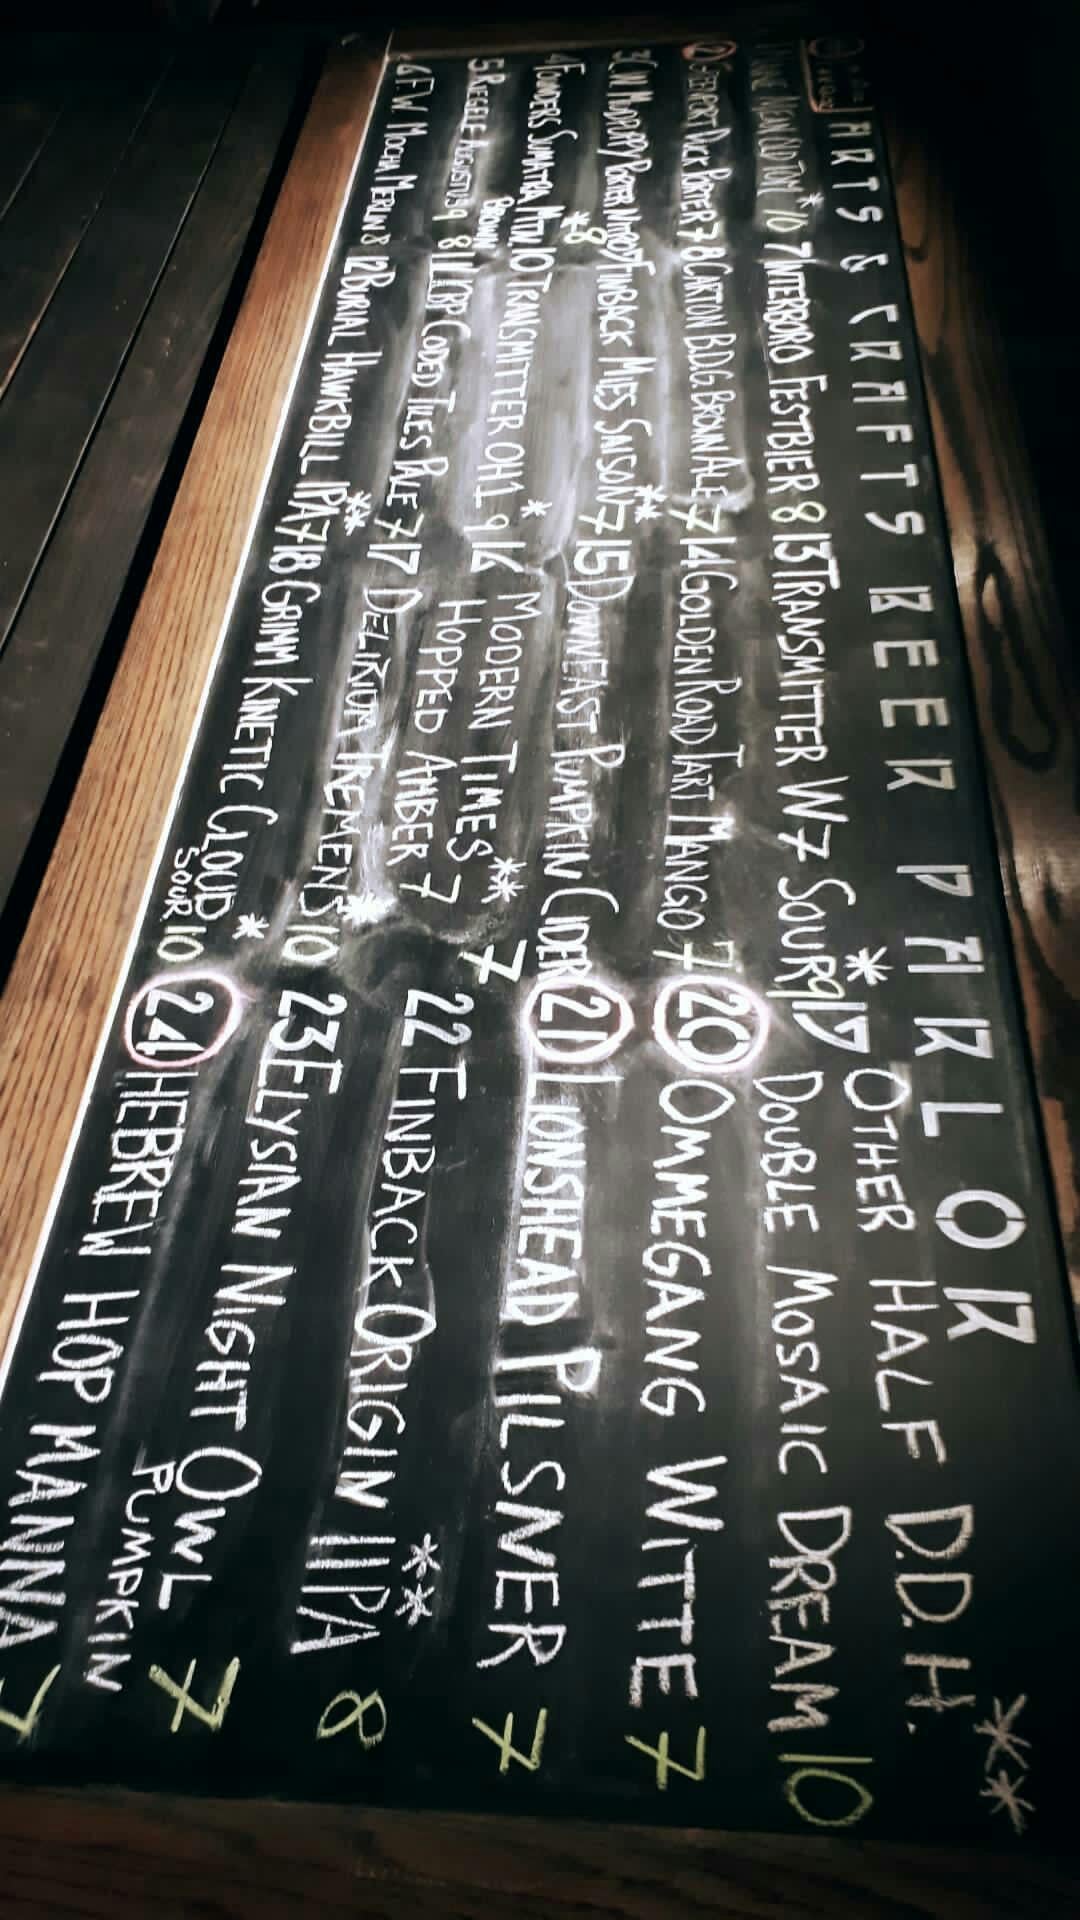 ARTS & CRAFTS BEER PARLOR
OLD TOM * 10
② DUCK PORTER 7
3 CW MUDPUPPY PORTER NITRO *8
4 FOUNDERS SUMATRA MTN. BROWN 8
5 RIEGELE AUGUSTUS 9
6 F.W. MOCHA MERLIN 8
7 INTERBORO FESTBIER 8
8 CARTON B.D.G. BROWN ALE 7
9 FINBACK MIES SAISON ** 7
10 TRANSMITTER OH1 * 9
11 KCBC CODED TILES PALE 7
12 BURIAL HAWKBILL IPA ** 7
13 TRANSMITTER W7 SOUR * 9
14 GOLDEN ROAD TART MANGO 7
15 DOWNEAST PUMPKIN CIDER 7
16 MODERN TIMES **
HOPPED AMBER 7
17 DELIRIUM TREMENS * 10
18 GRIMM KINETIC CLOUD *
SOUR 10
19 OTHER HALF D.D.H. **
DOUBLE MOSAIC DREAM 10
⑳ OMMEGANG WITTE 7
㉑ LIONSHEAD PILSNER 7
22 FINBACK ORIGIN IIIPA ** 8
23 ELYSIAN NIGHT OWL
PUMPKIN 7
㉔ HEBREW HOP MANNA 7